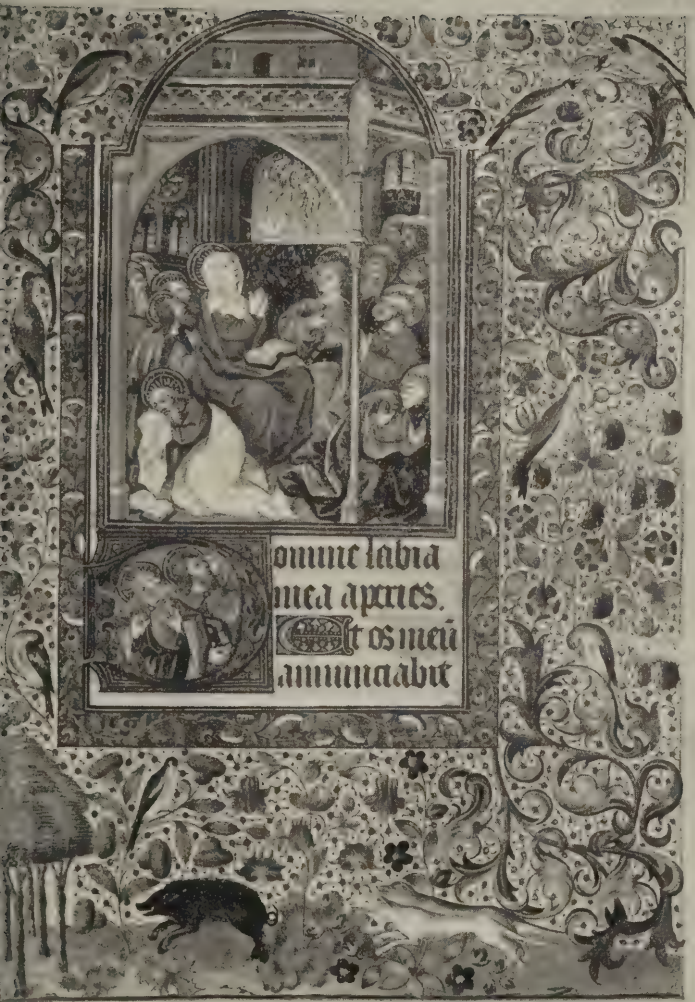 Domine labia
mea aperies.
Et os meū
annunciabit